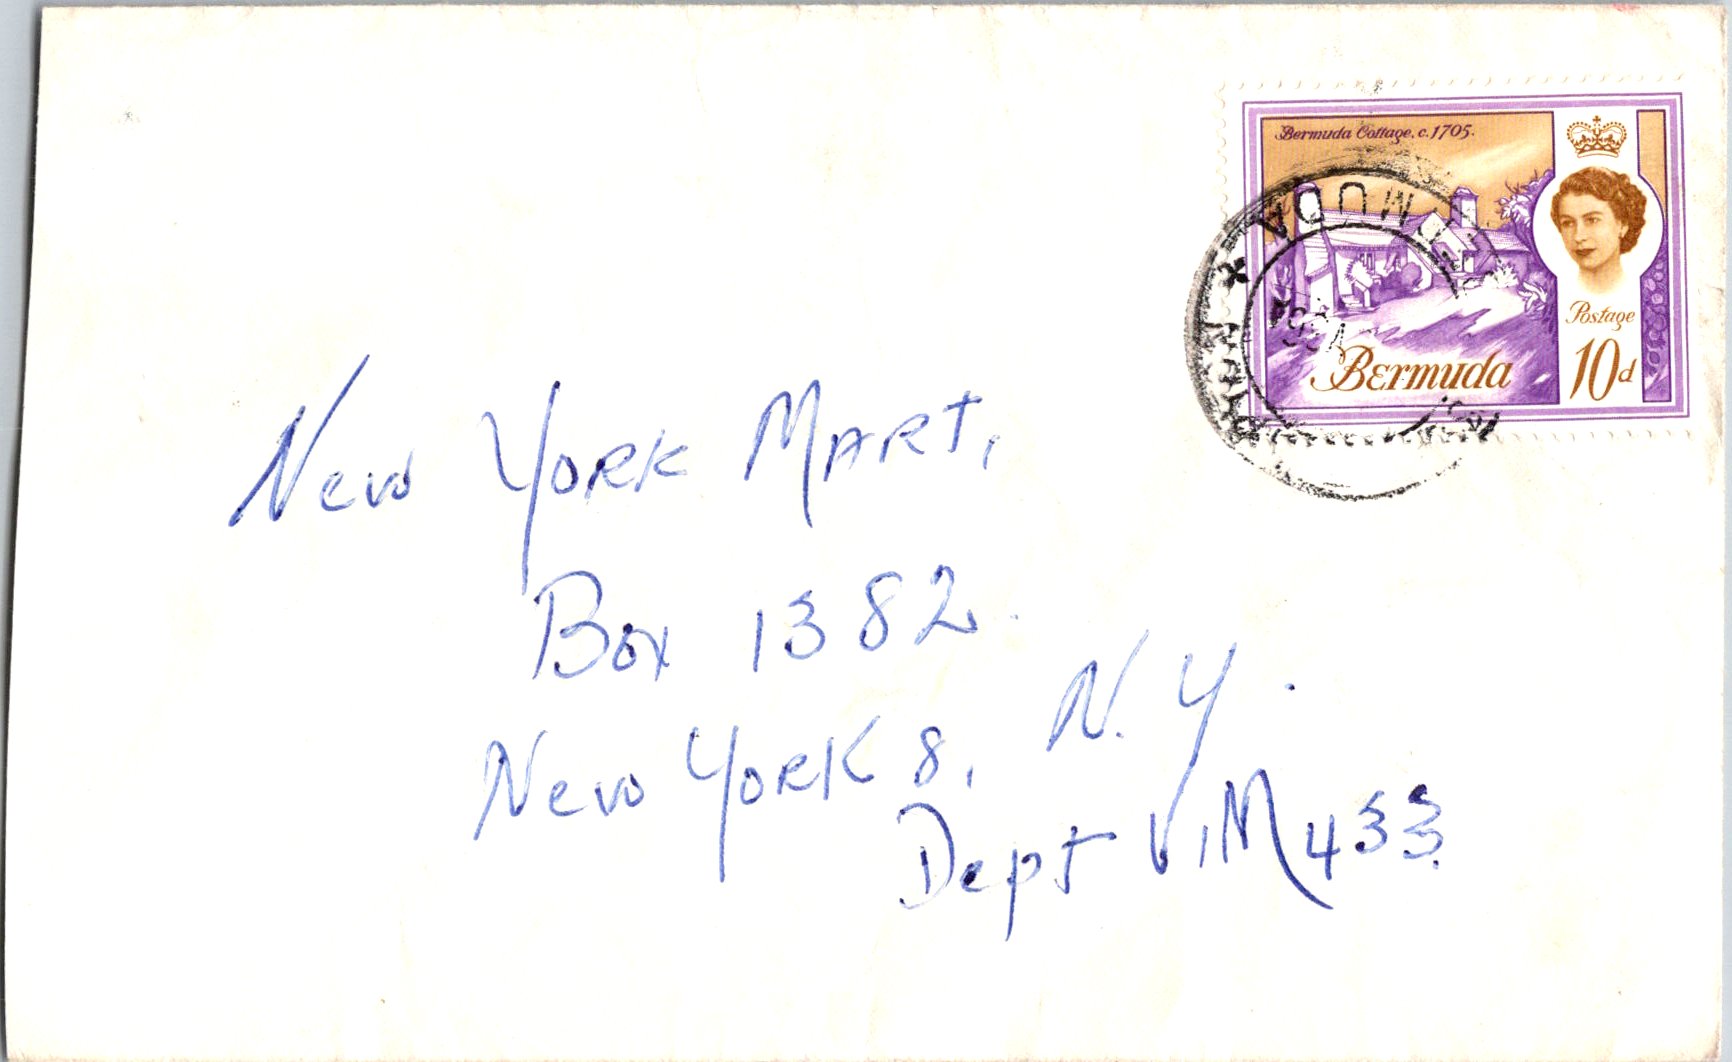 Bermuda Cottage, c.1705.
Postage
10d
Bermuda
New York Mart,
Box 1382.
New York 8, N.Y.
Dept VIM 433.